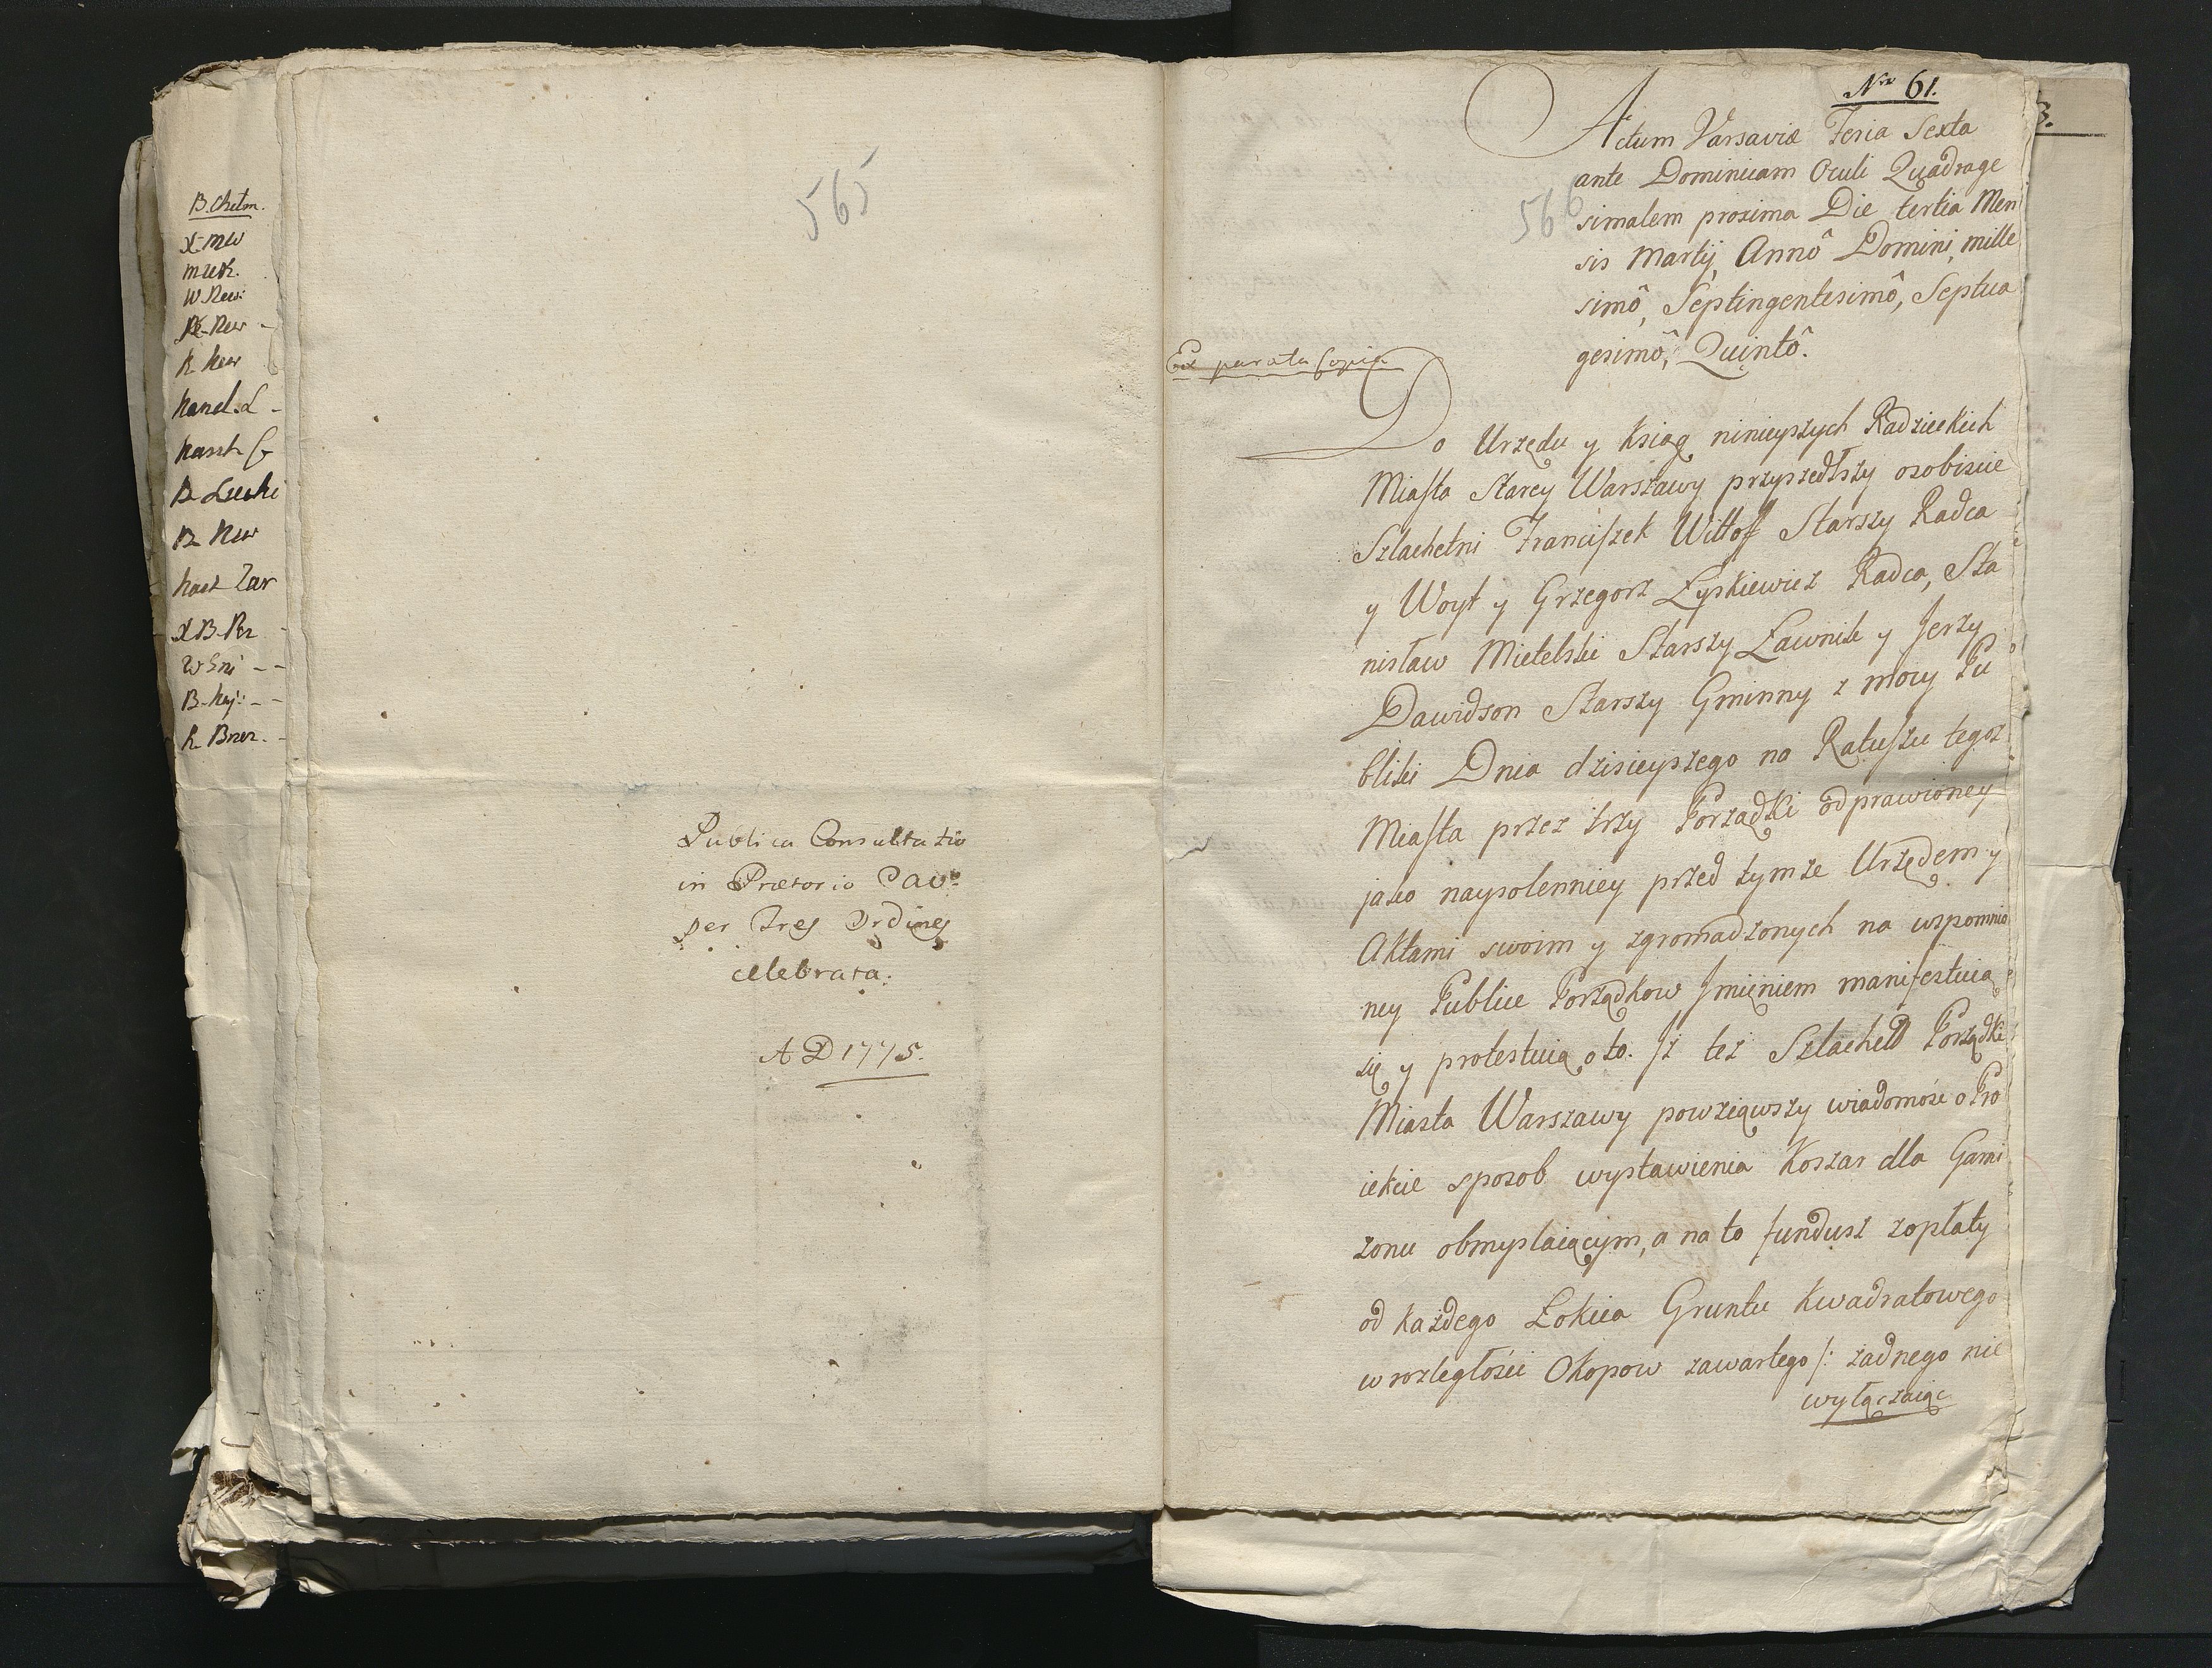 B. Chełm.
X. MW
W. Naw:
K. Naw
Kasst
B. Lucki
B. Naw
Kaszt Zar
X B. Prz
W. Gni - -
B. Kij: - -
K. Brzez. -
565
Publica Consultatio
in Prætorio
per Tres Ordines
celebrata.
A D 1775.
Nro 61.
Actum Varsaviæ Feria Sexta
ante Dominicam Oculi Quadrage
566
simalem proxima Die tertia Men
sis Martij, Annô Domini, mille
simô, Septingentesimô, Septua
gesimô, Quintô.
Ex parata Copia
Do Urzędu y Xsiąg ninieyszych Radzieckich
Miasta Starey Warszawy przyszedłszy osobiscie
Szlachetni Franciszek Wittoff Starszy Radca
y Woyt y Grzegorz Łyskiewicz Radca, Sta
nisław Mietelski Starszy Ławnik y Jerzy
Dawidson Starszy Gminny z mocy Pu
bliki Dnia dzisieyszego na Ratuszu tegoz
Miasta przez trzy Porządki odprawioney
jako naysolenniey przed tymze Urzędem y
Aktami swoim y zgromadzonych na wspomnio
ney Publice Porządkow Jmieniem manifestuią
się y protestuią o to. Jz tez Szlachet Porządki
Miasta Warszawy powziąwszy wiadomość o Pro
iekcie sposob wystawienia Koszar dla Garni
zonu obmyslaiącym, a na to fundusz zopłaty
od każdego Łokcia Gruntu Kwadratowego
w rozległości Okopow zawartego /: zadnego nie
wyłączaiąc